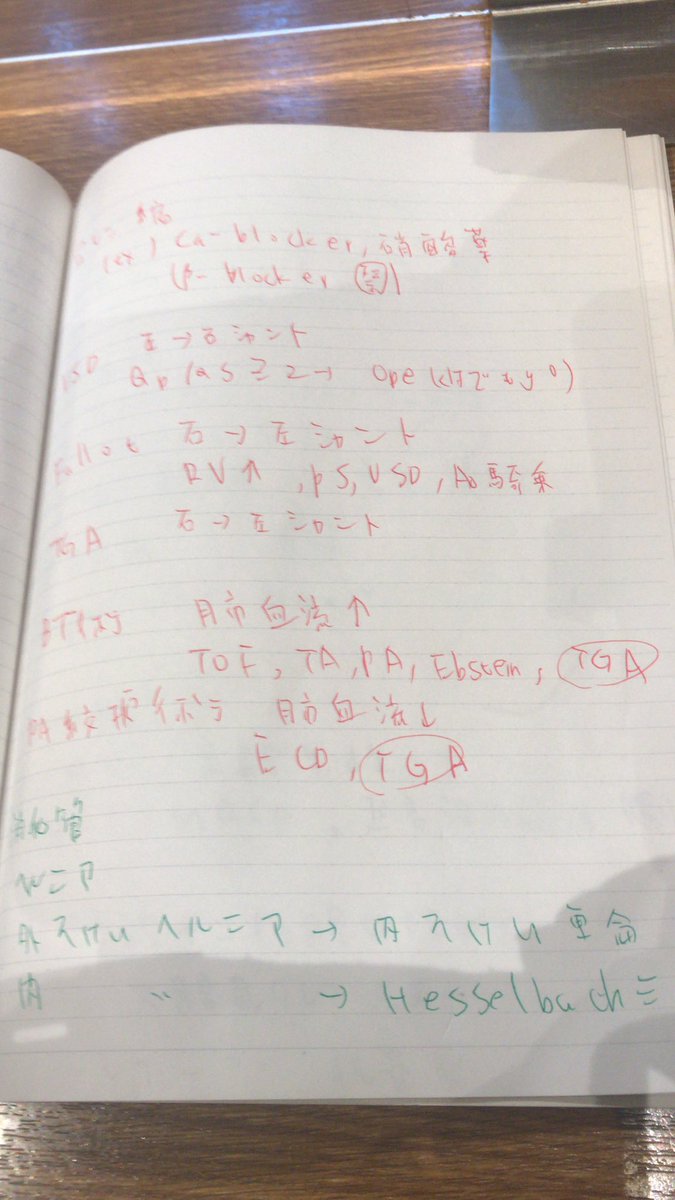 (ex) Ca-blocker, 硝酸薬
(β-blocker 禁忌)
左→右シャント
Qp/Qs≧2→ ope
Fallot 右→左シャント
RV↑, PS, VSD, Ao騎乗
TGA 右→左シャント
肺血流↑
TOF, TA, PA, Ebstein, TGA
PA絞扼術 肺血流↓
ECD, TGA
ヘルニア
外そけいヘルニア → 内そけい
内 〃 → Hesselbach三